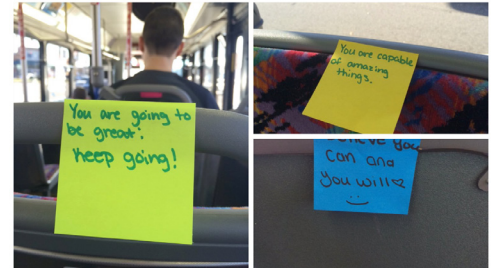 You are going to
be great!
Keep going!
You are capable
of amazing
things.
you
can and
you will♡